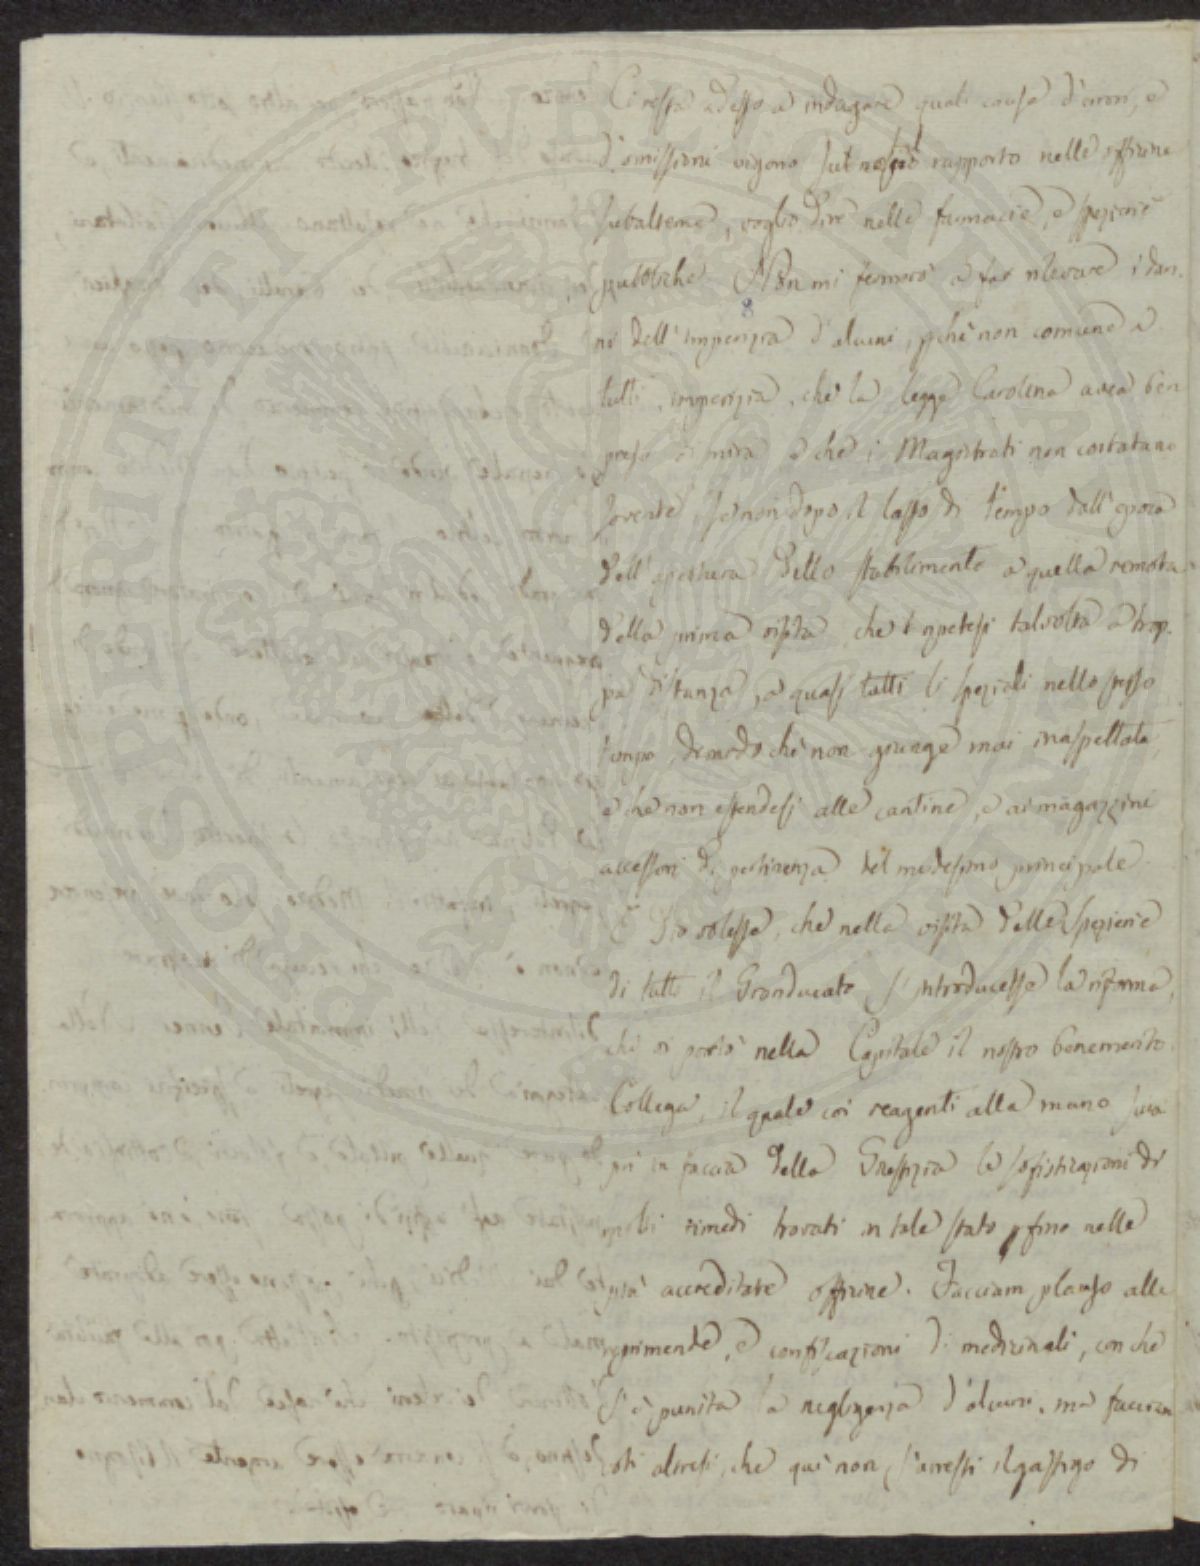 Ci resta adesso a indagare quali cause d'errori, e
d'omissioni vigono sul nostro rapporto nelle officine
subalterne, voglio dire nelle farmacie, e spezierie
pubbliche. Non mi fermerò a far rilevare i dan-
ni dell'imperizia d'alcuni, pchè non comune a
tutti, imperizia, che la legge Carolina avea ben
preso di mira e che i Magistrati non costatano
sovente, se non dopo il lasso di tempo dall'epoca
dell'apertura dello stabilimento a quella remota
della prima visita, che ripetesi talvolta a trop-
pa distanza, a quasi tutti li speziali nello stesso
tempo, di modo che non giunge mai inaspettata,
e che non estendesi alle cantine, e ai magazzini
accessori di pertinenza del medesimo principale.
Dio volesse, che nella visita delle Spezierie
di tutto il Granducato s'introducesse la riforma,
che vi portò nella Capitale il nostro benemerito
Collega, il quale coi reagenti alla mano
in faccia della le sofisticazioni di
molti rimedi trovati in tale stato pfino nelle
più accreditate officine. Facciam plauso alle
reprimende, e confiscazioni di medicinali, con che
s'è punita la negligenza d'alcuni, ma facciam
voti altresì, che quì non s'arresti il gastigo di